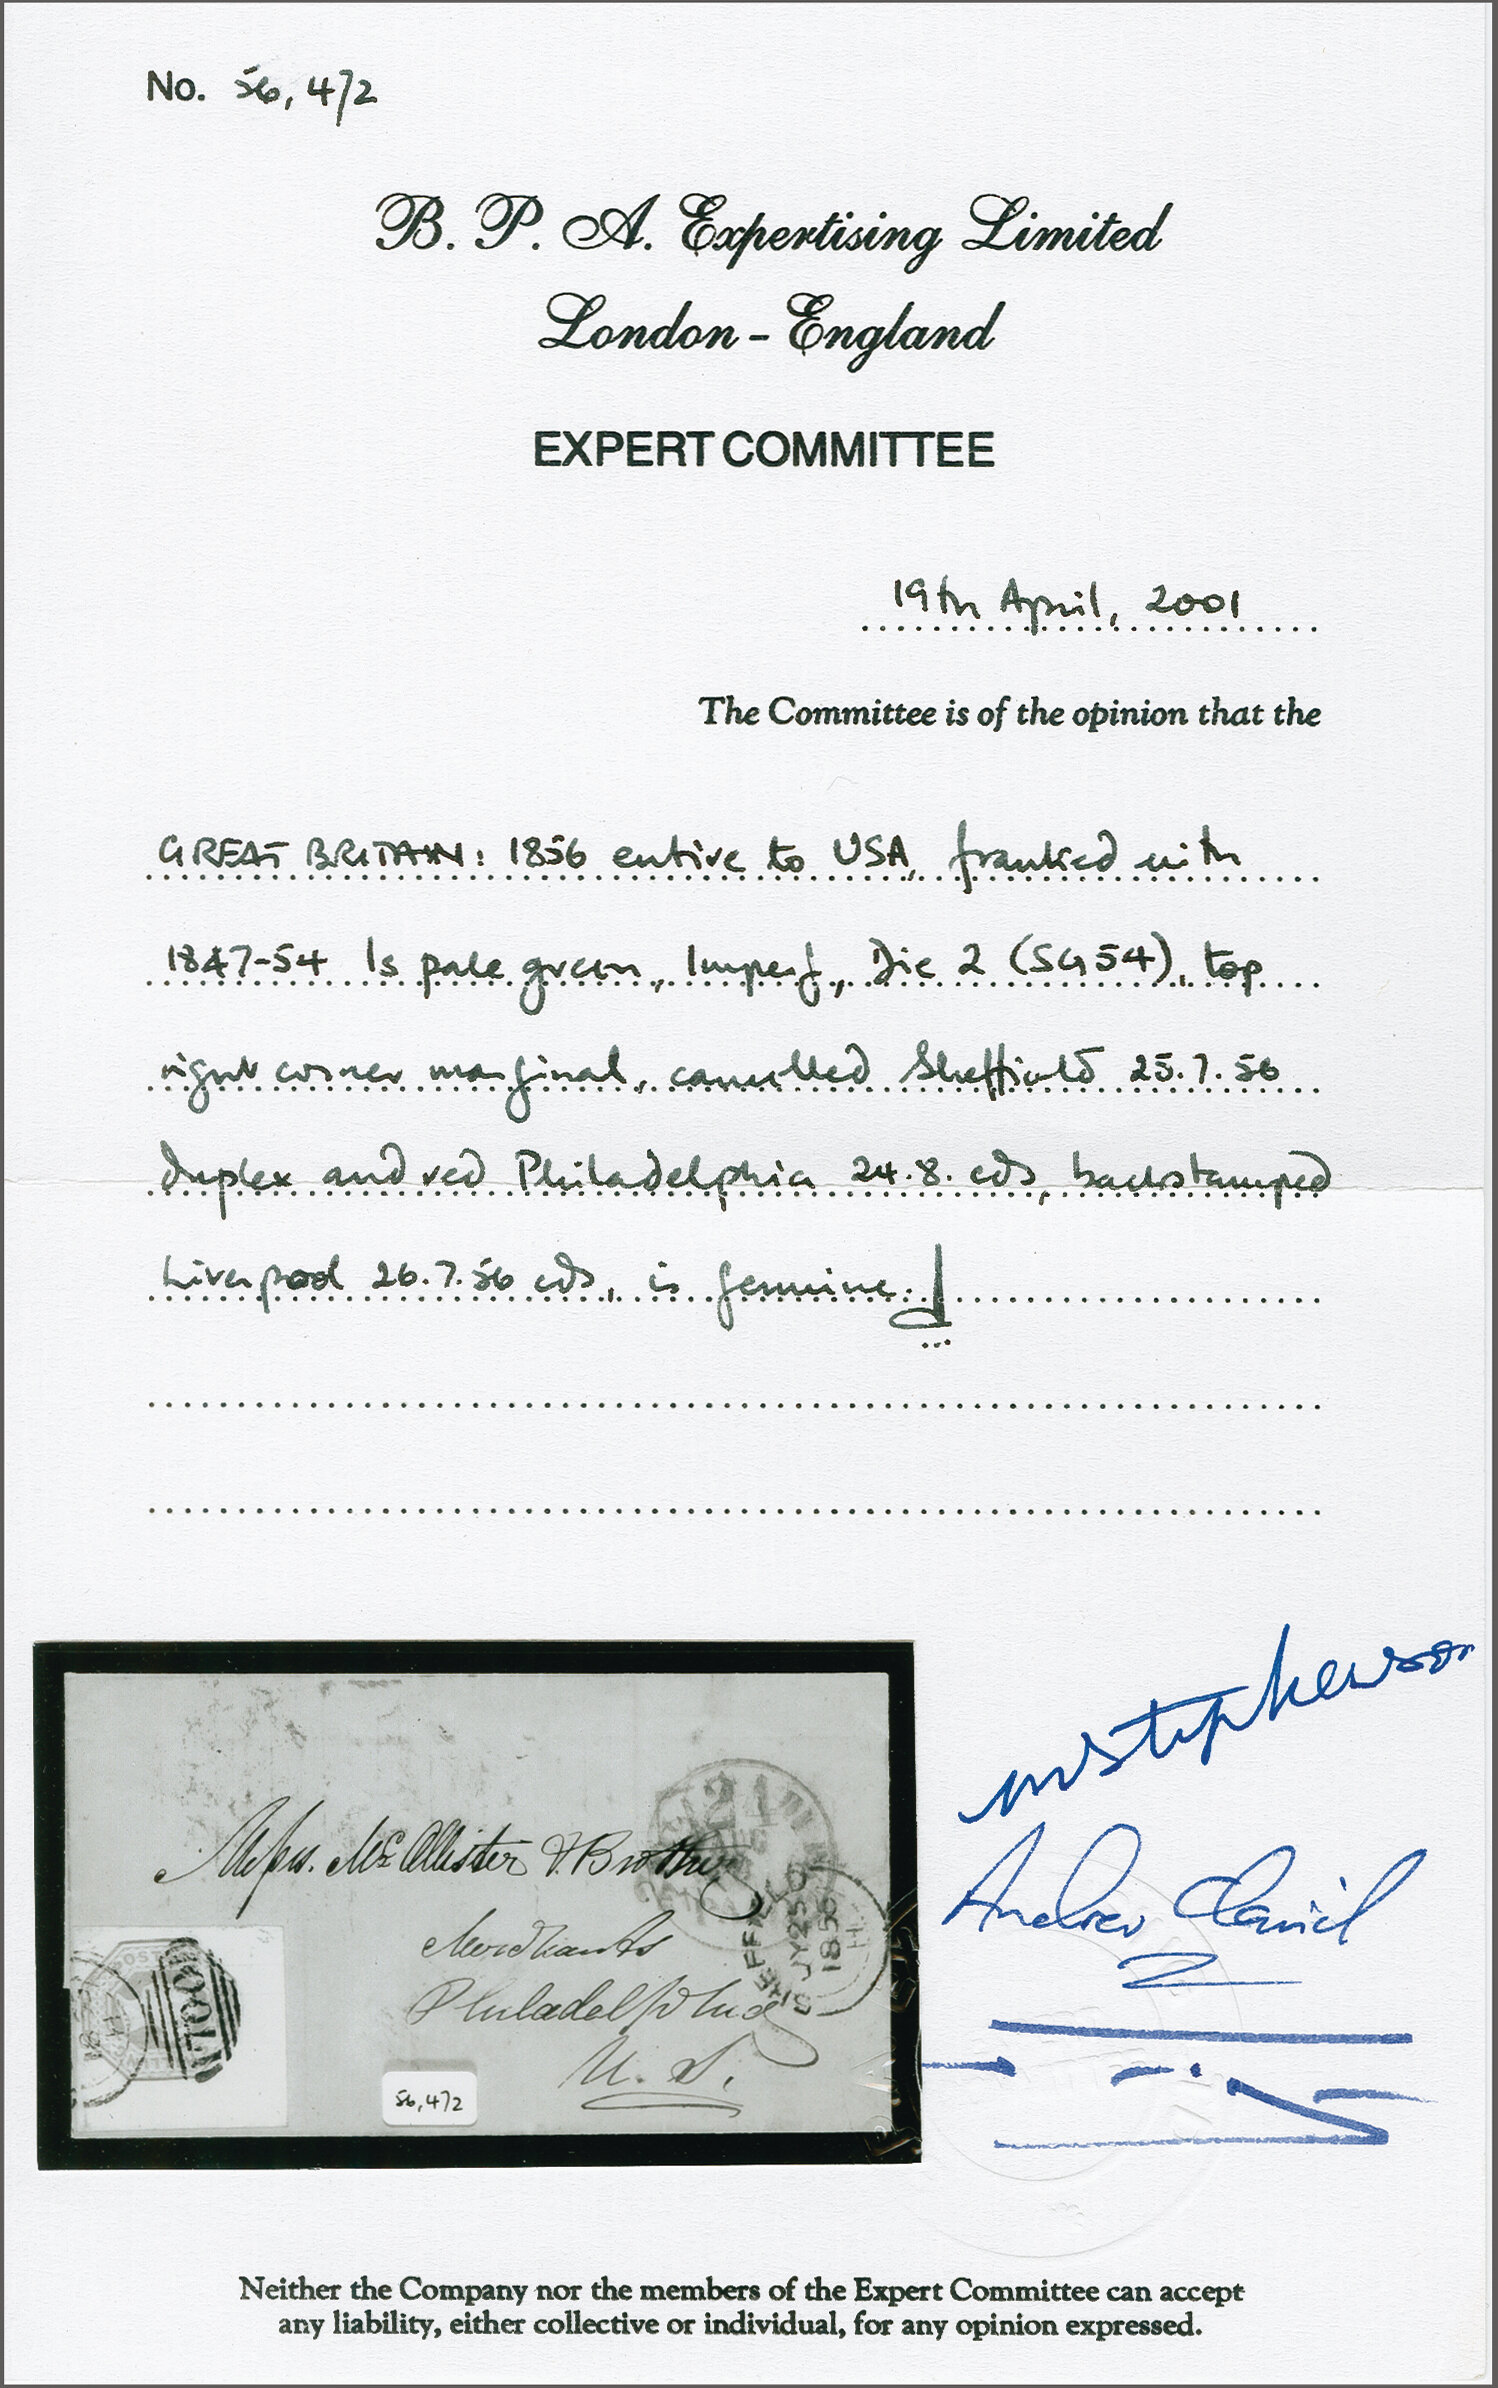 No. 56,472
B. P. A. Expertising Limited
London - England
EXPERT COMMITTEE
19th April, 2001
The Committee is of the opinion that the
GREAT BRITAIN: 1856 entire to USA, franked with
1847-54 1s pale green, Imperf, Die 2 (SG54), top
right corner marginal, cancelled Sheffield 25.7.56
duplex and red Philadelphia 24.8. cds, backstamped
Liverpool 26.7.56 cds, is genuine.
Messrs. McAllister & Brother
Merchants
Philadelphia
U. S.
24
SHEFFIELD
JY 25
1856
H
700
56,472
Stephenson
Andrew Claniel
Neither the Company nor the members of the Expert Committee can accept
any liability, either collective or individual, for any opinion expressed.